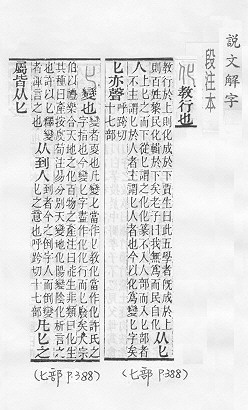 說文解字
段注本
化
教行也
教行於上則化成於下賈生曰此五學者旣成於上
則百姓黎民化輯於下矣老子曰我無爲而民自化
从匕
人
上匕之而下從匕謂之化化篆不入人部而入匕部者
不主謂匕於人者主謂匕人者也今以化爲變匕字矣
匕亦聲
呼跨切
十七部
匕
變也
變者㪅也凡變匕當作匕教化當作化許氏之
字指也今變匕字盡作化化行而匕廢矣大宗
伯以禮樂合天地之化百物之產注曰能生非類曰化生
其種曰產按虞荀注易分別天變地化陽變陰化析言之
也許以匕釋變
者渾言之也
从到人
到者今之倒字人而倒變
匕之意也呼跨切十七部
凡匕之
屬皆从匕
(匕部 P388)
(匕部 P.388)